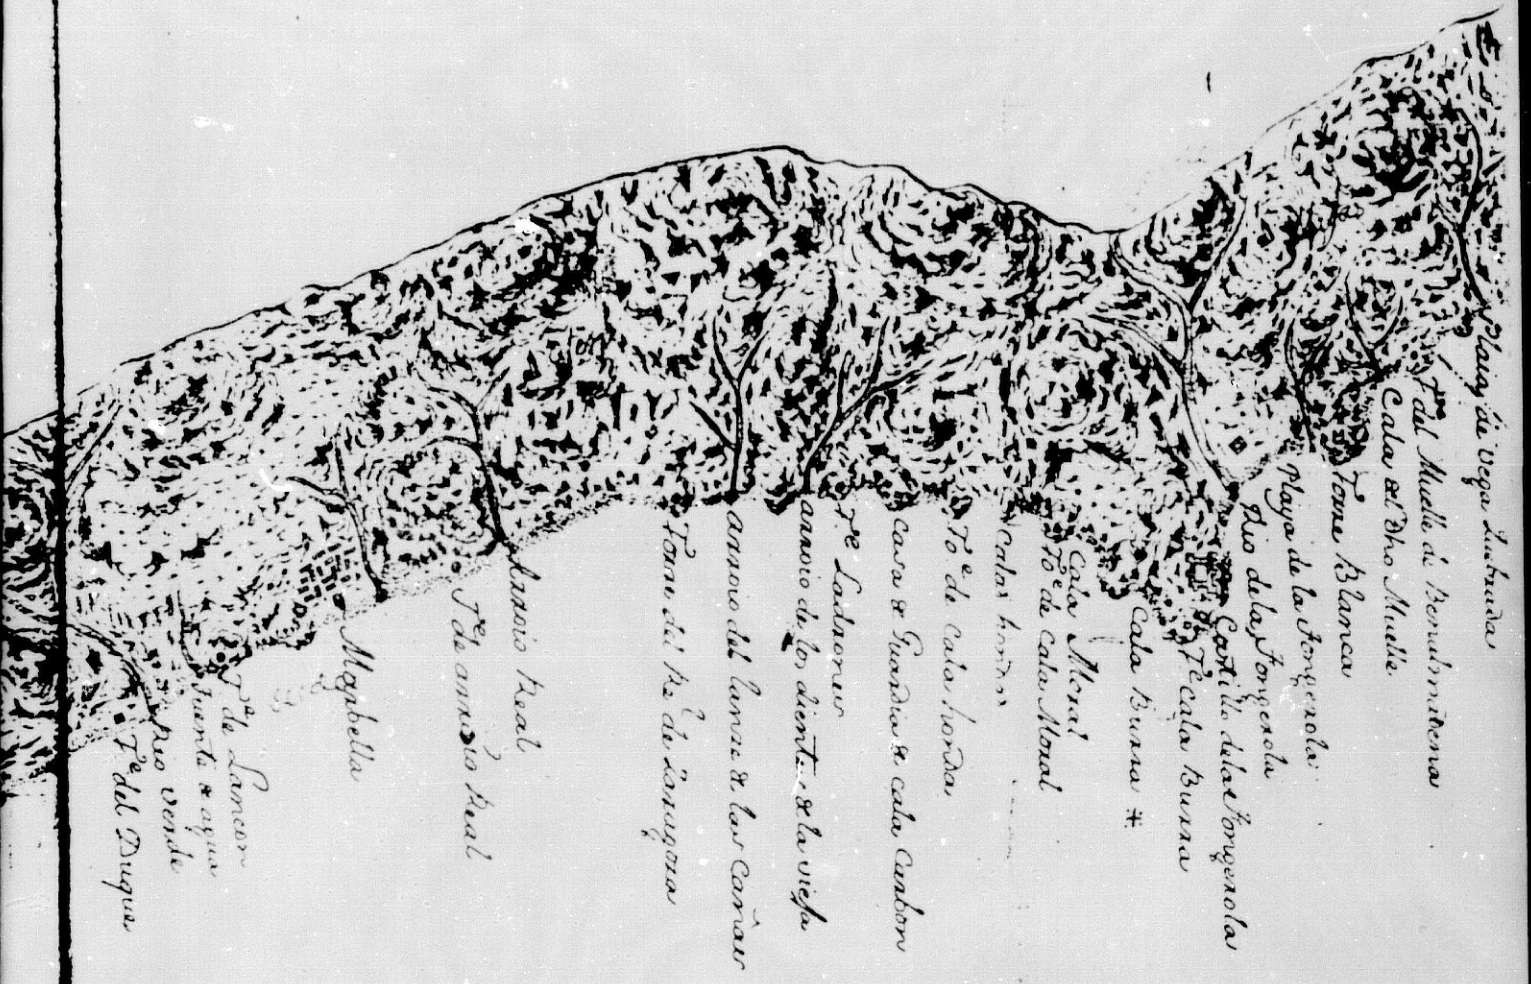 Plaia, de vega
Tre del Muelle de Benalmaena
Cala del Dho Muelle
Torre Blanca
Playa de la Fongerola
Rio de la Fongerola
Castillo de la Fongerola
Te Cala Burra
Cala Burra #
Cala Moral
Toe de Cala Moral
Calas hondas
Toe de Cala honda
casa de Guardia de cala Carbon
Te Ladrones
arroio de los dientes de la vieja
arroio del lanze de las Cañas
Torre del
Arroio Real
Te de arroio Real
Marbella
Te de Lancon
fuente de agua
Rio verde
Te del Duque